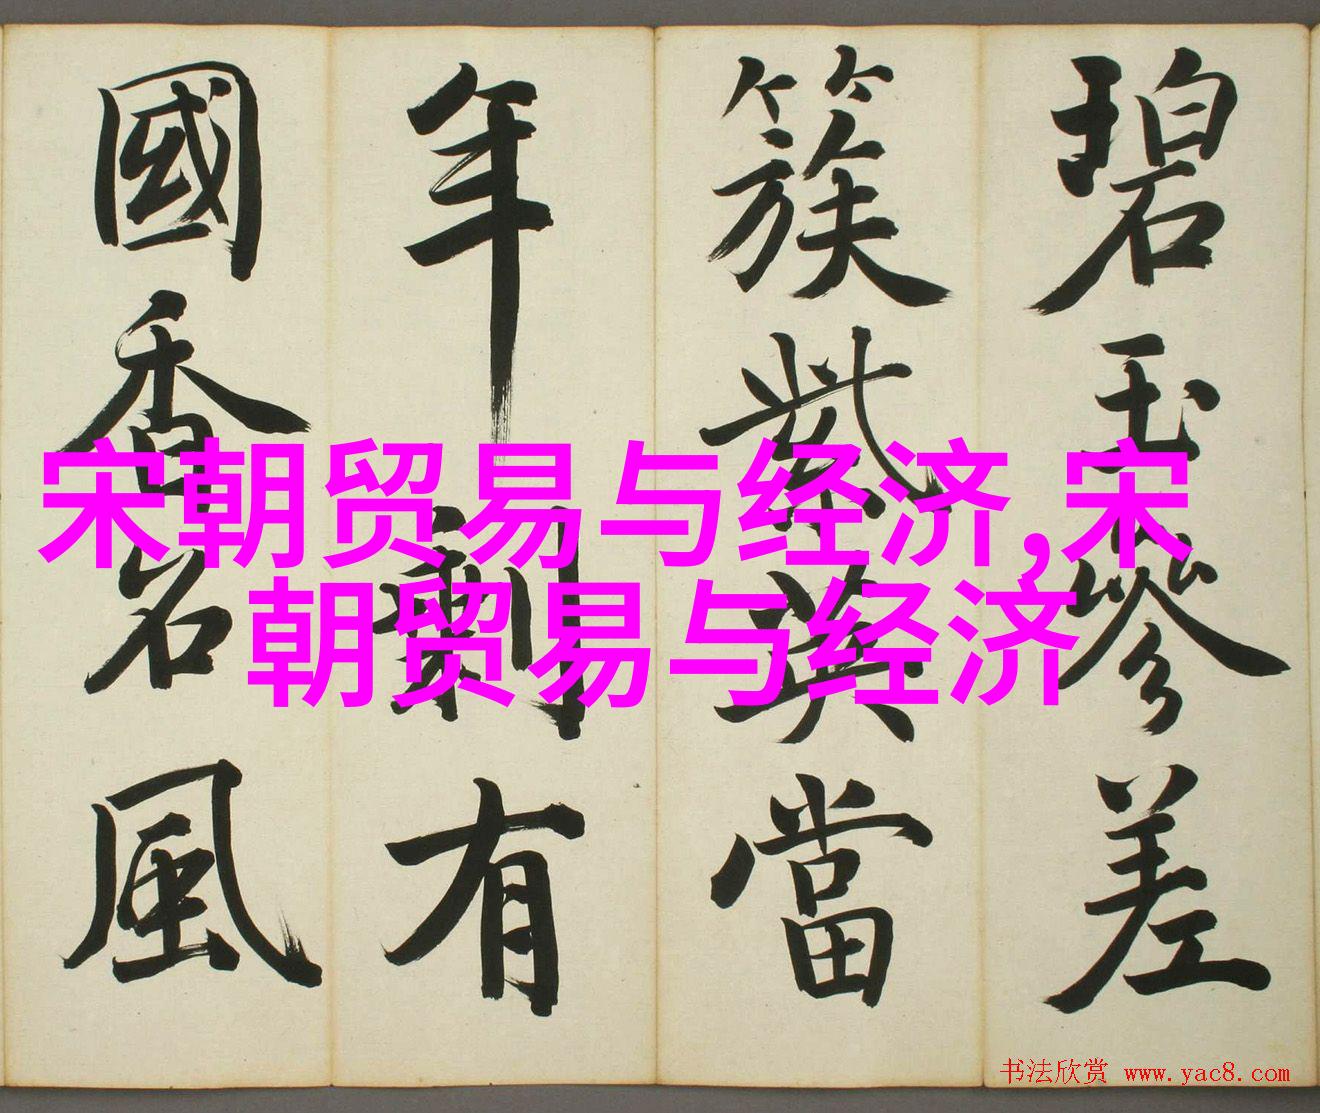 碧玉參差
簇紫英當
年剩有
國香名風
宋朝贸易与经济,宋
朝贸易与经济
书法欣赏 www.yac8.com